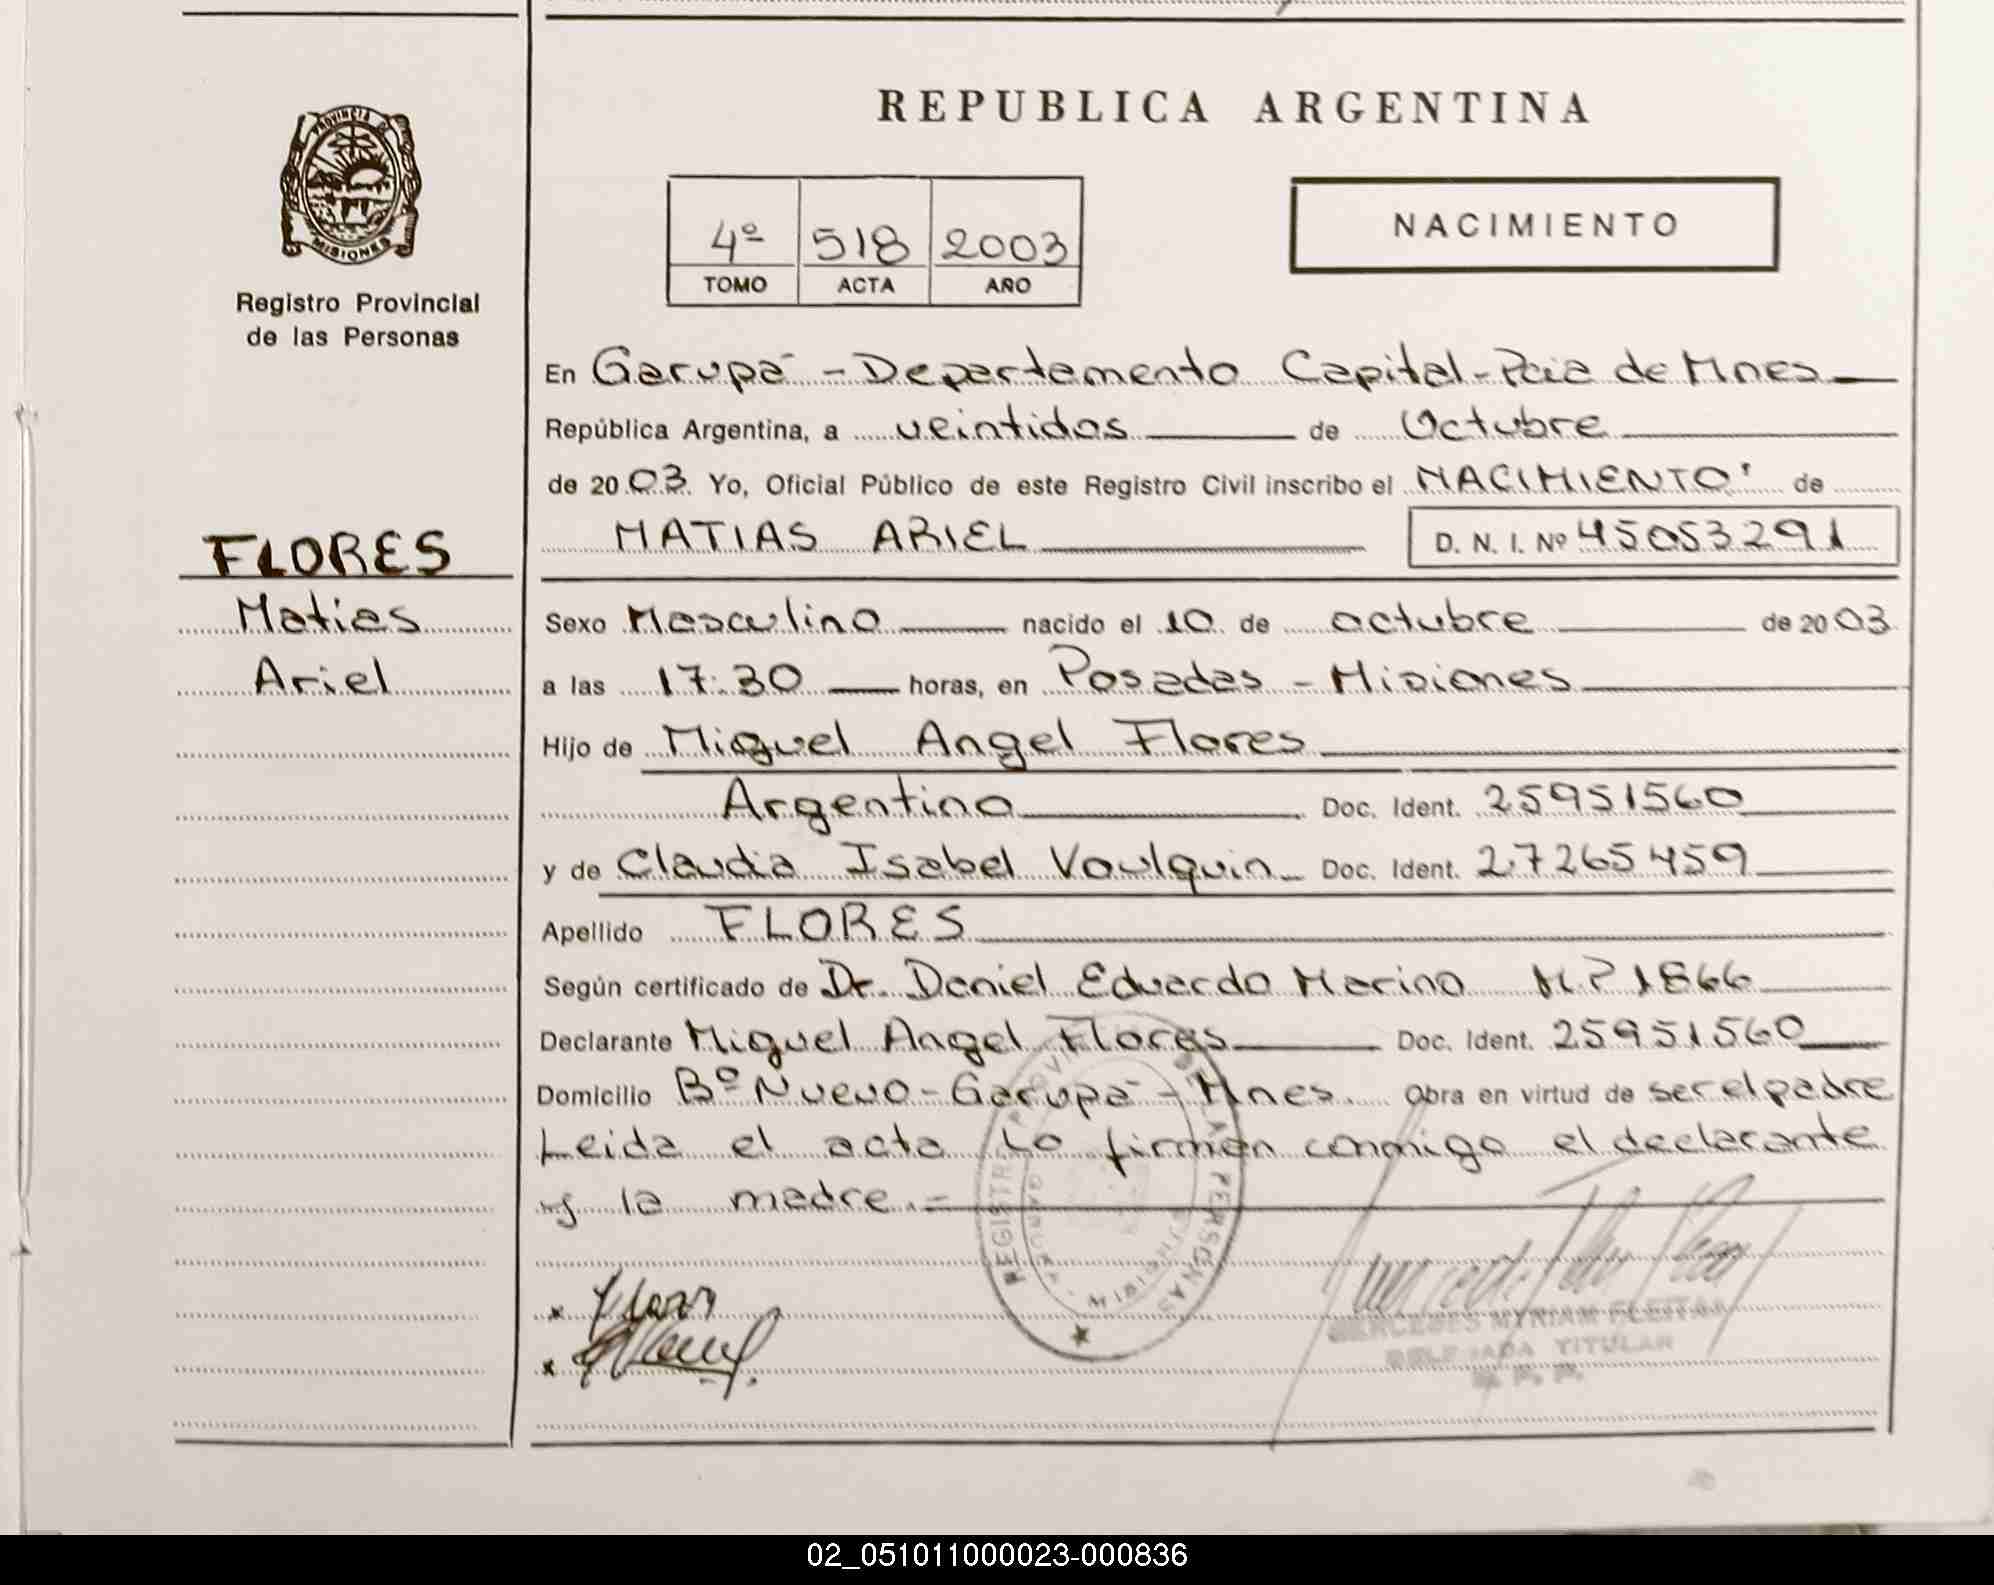 REPUBLICA ARGENTINA
PROVINCIA DE
MISIONES
Registro Provincial
de las Personas
4º 518 2003
TOMO ACTA AÑO
NACIMIENTO
En Garupá - Departamento Capital - Pcia de Mnes
República Argentina, a veintidos de Octubre
de 2003 Yo, Oficial Público de este Registro Civil inscribo el NACIMIENTO de
MATIAS ARIEL D. N. I. Nº 45053291
FLORES
Matias
Ariel
Sexo Masculino nacido el 10 de octubre de 2003
a las 17:30 horas, en Posadas - Misiones
Hijo de Miguel Angel Flores
Argentino Doc. Ident. 25951560
y de Claudia Isabel Voulquin Doc. Ident. 27265459
Apellido FLORES
Según certificado de Dr. Daniel Eduardo Merino M.P 1866
Declarante Miguel Angel Flores Doc. Ident. 25951560
Domicilio Bº Nuevo - Garupá - Mnes. Obra en virtud de ser el padre
Leida el acta lo firman conmigo el declarante
y la madre.=
REGISTRO PROVINCIAL DE LAS PERSONAS
GARUPA
MISIONES
MERCEDES MYRIAM FLEITAS
DELEGADA TITULAR
R. P. P.
02_051011000023-000836